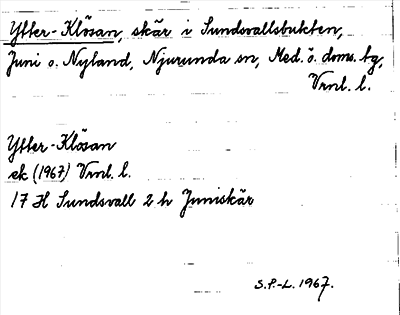 Ytter-Klösan, skär i Sundsvallsbukten,
Juni o. Nyland, Njurunda sn, Med. ö. doms. tg,
Vrnl. l.
Ytter-Klösan
ek (1967) Vrnl. l.
17 H Sundsvall 2 h Juniskär
S.P.-L. 1967.